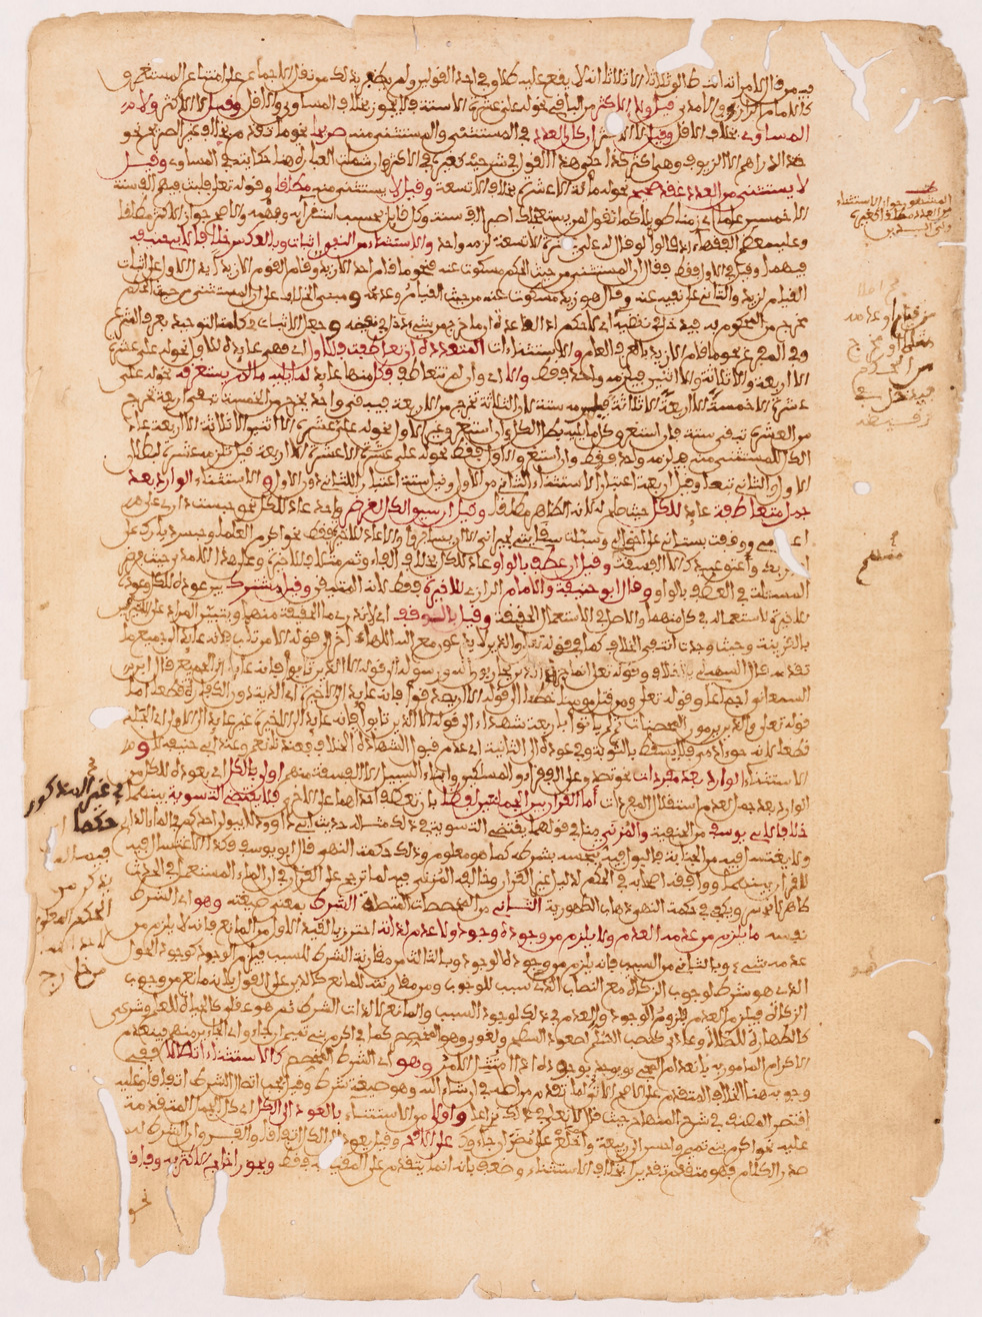 فيمن قال لامراته انت طالق ثلاثا الا ثلاثا انه لا يقع عليه طلاق في احد القولين ولم يظفر بذلك من نقل الاجماع على امتناع المستغرق
كالامام الرازي والامدي قيل ولا الاكثر من الباقي نحو له علي عشرة الا ستة فلا يجوز بخلاف المساوي والاقل وقيل لا الاكثر ولا
المساوي بخلاف الاقل وقيل لا الاكثر ان كان العدد في المستثنى والمستثنى منه صريحا نحو ما تقدم بخلاف غير الصريح نحو
خذ الدراهم الا الزيوف وهي اكثر كذا حكى هذا القول في شرحيه كغيره في الاكثر وان شملت العبارة هنا حكايته في المساوي وقيل
لا يستثنى من العدد عقد صحيح نحو له مائة الا عشرة بخلاف الا تسعة وقيل لا يستثنى منه مطلقا وقوله تعلى فلبث فيهم الف سنة
الا خمسين عاما اي زمنا طويلا كما تقول لمن يستعجلك اصبر الف سنة وكل قايل بحسب استقرايه وفهمه والاصح جواز الاكثر مطلقا
وعليه معظم الفقهاء اذ قالوا لو قال له علي عشرة الا تسعة لزمه واحد والاستثناء من النفي اثبات وبالعكس خلافا لابي حنيفة
فيهما وقيل في الاول فقط فقال ان المستثنى من حيث الحكم مسكوت عنه فنحو ما قام احد الا زيد وقام القوم الا زيدا يدل الاول على اثبات
القيام لزيد والثاني على نفيه عنه وقال هو زيد مسكوت عنه من حيث القيام وعدمه ومبنى الخلاف على ان المستثنى من حيث الحكم
مخرج من المحكوم به فيدخل في نقيضه اي لا حكم اذ القاعدة ان ما خرج من شيء دخل في نقيضه وجعل الاثبات في كلمة التوحيد بعرف الشرع
وفي المفرغ نحو ما قام الا زيد بالعرف العام والاستثناءات المتعددة ان تعاطفت فللاول اي فهي عايدة للاول نحو له علي عشرة
الا اربعة والا ثلاثة والا اثنين فيلزمه واحد فقط والا اي وان لم تتعاطف فكل منها عايد لما يليه ما لم يستغرقه نحو له علي
عشرة الا خمسة الا اربعة الا ثلاثة فيلزمه ستة لان الثلاثة تخرج من الاربعة فيبقى واحد يخرج من الخمسة تبقى اربعة تخرج
من العشرة تبقى ستة فان استغرق كل ما يليه بطل الكل وان استغرق غير الاول نحو له علي عشرة الا اثنين الا ثلاثة الا اربعة عاد
الكل للمستثنى منه فيلزمه واحد فقط وان استغرق الاول فقط نحو له علي عشرة الا عشرة الا اربعة قيل تلزمه عشرة لبطلان
الاول والثاني تبعا وقيل اربعة اعتبارا لاستثناء الثاني من الاول وقيل ستة اعتبارا للثاني دون الاول والاستثناء الوارد بعد
جمل متعاطفة عايد للكل حيث صلح له لانه الظاهر مطلقا وقيل ان سيق الكل لغرض واحد عاد للكل نحو حبست داري على
اعمامي ووقفت بستاني على اخوالي وسبلت سقايتي لجيراني الا ان يسافروا والا عاد للاخيرة فقط نحو اكرم العلماء وحبس ديارك على
اقاربك واعتق عبيدك الا الفسقة وقيل ان عطف بالواو عاد للكل بخلاف الفاء وثم مثلا فللاخيرة وعلى هذا الامدي حيث فرض
المسئلة في العطف بالواو وقال ابو حنيفة والامام الرازي للاخيرة فقط لانه المتيقن وقيل مشترك بين عوده للكل وعوده
للاخيرة لاستعماله في كل منهما والاصل في الاستعمال الحقيقة وقيل بالتوقف اي لا ندري ما الحقيقة منهما ويتبين المراد على القولين
بالقرينة وحيث وجدت انتفى الخلاف كما في قوله تعلى والذين لا يدعون مع الله الها اخر الى قوله الا من تاب فانه عايد الى جميع ما
تقدمه قال السهيلي بلا خلاف وقوله تعلى انما جزاء الذين يحاربون الله ورسوله الى قوله الا الذين تابوا فانه عايد الى الجميع قال ابن
السمعاني اجماعا وقوله تعلى ومن قتل مومنا خطئا الى قوله الا ان يصدقوا فانه عايد الى الاخيرة اي الدية دون الكفارة قطعا اما
قوله تعلى والذين يرمون المحصنات ثم لم ياتوا باربعة شهداء الى قوله الا الذين تابوا فانه عايد الى الاخيرة غير عايد الى الاول اي الجلد
قطعا لانه حق ادمي فلا يسقط بالتوبة وفي عوده الى الثانية اي عدم قبول الشهادة الخلاف فعندنا نعم وعند ابي حنيفة لا و
الاستثناء الوارد بعد مفردات نحو تصدق على الفقراء والمساكين وابناء السبيل الا الفسقة منهم اولى بالكل اي بعوده للكل من
الوارد بعد جمل لعدم استقلال المفردات اما القران بين الجملتين لفظا بان تعطف احداهما على الاخرى فلا يقتضي التسوية بينهما
خلافا لابي يوسف من الحنفية والمزني منا في قولهما يقتضي التسوية في ذلك مثاله حديث ابي داوود لا يبولن احدكم في الماء الدايم
ولا يغتسل فيه من الجنابة فالبول فيه ينجسه بشرطه كما هو معلوم وذلك حكمة النهي قال ابو يوسف فكذا الاغتسال فيه
للقران بينهما ووافقه اصحابه في الحكم لدليل غير القران وخالفه المزني فيه لما ترجح على القران في ان الماء المستعمل في الحدث
طاهر لا نجس ويكفي في حكمة النهي ذهاب الطهورية الثاني من المخصصات المتصلة الشرط بمعنى صيغته وهو اي الشرط
نفسه ما يلزم من عدمه العدم ولا يلزم من وجوده وجود ولا عدم لذاته احترز بالقيد الاول من المانع فانه لا يلزم من
عدمه شيء وبالثاني من السبب فانه يلزم من وجوده الوجود وبالثالث من مقارنة الشرط للسبب فيلزم الوجود كوجود الحول
الذي هو شرط لوجوب الزكاة مع النصاب الذي هو سبب للوجوب ومن مقارنته للمانع كالدين على القول بانه مانع من وجوب
الزكاة فيلزم العدم فلزوم الوجود والعدم في ذلك لوجود السبب والمانع لا لذات الشرط ثم هو عقلي كالحياة للعلم وشرعي
كالطهارة للصلاة وعادي كنصب السلم لصعود السطح ولغوي وهو المخصص كما في اكرم بني تميم ان جاءوا اي الجايين منهم فينعدم
الاكرام المامور به بانعدام المجيء ويوجد بوجوده اذا امتثل الامر وهو اي الشرط المخصص كالاستثناء اتصالا ففي
وجوبه هنا الخلاف المتقدم على الاصح الا ترى لما تقدم من اصله في ان شاء الله وهو صيغة شرط وقيل يجب اتصال الشرط اتفاقا وعليه
اقتصر المصنف في شرح المنهاج حيث قال لا نعلم في ذلك نزاعا واولى من الاستثناء بالعود الى الكل اي كل الجمل المتقدمة
عليه نحو اكرم بني تميم واحسن الى ربيعة واخلع على مضر ان جاءوك على الاصح وقيل يعود الى الكل اتفاقا والفرق ان الشرط له
صدر الكلام فهو متقدم تقديرا بخلاف الاستثناء وضعف بانه انما يتقدم على المقيد به فقط ويجوز اخراج الاكثر به وفاقا
نحو
المشهور جواز الاستثناء
من العدد مطلقا
من قيام او عدمه
مخرج
من الحكم
فيدخل في
نقيضه
في غير المذكور
حكما
يذكر من
الحكم المعلوم
من خارج